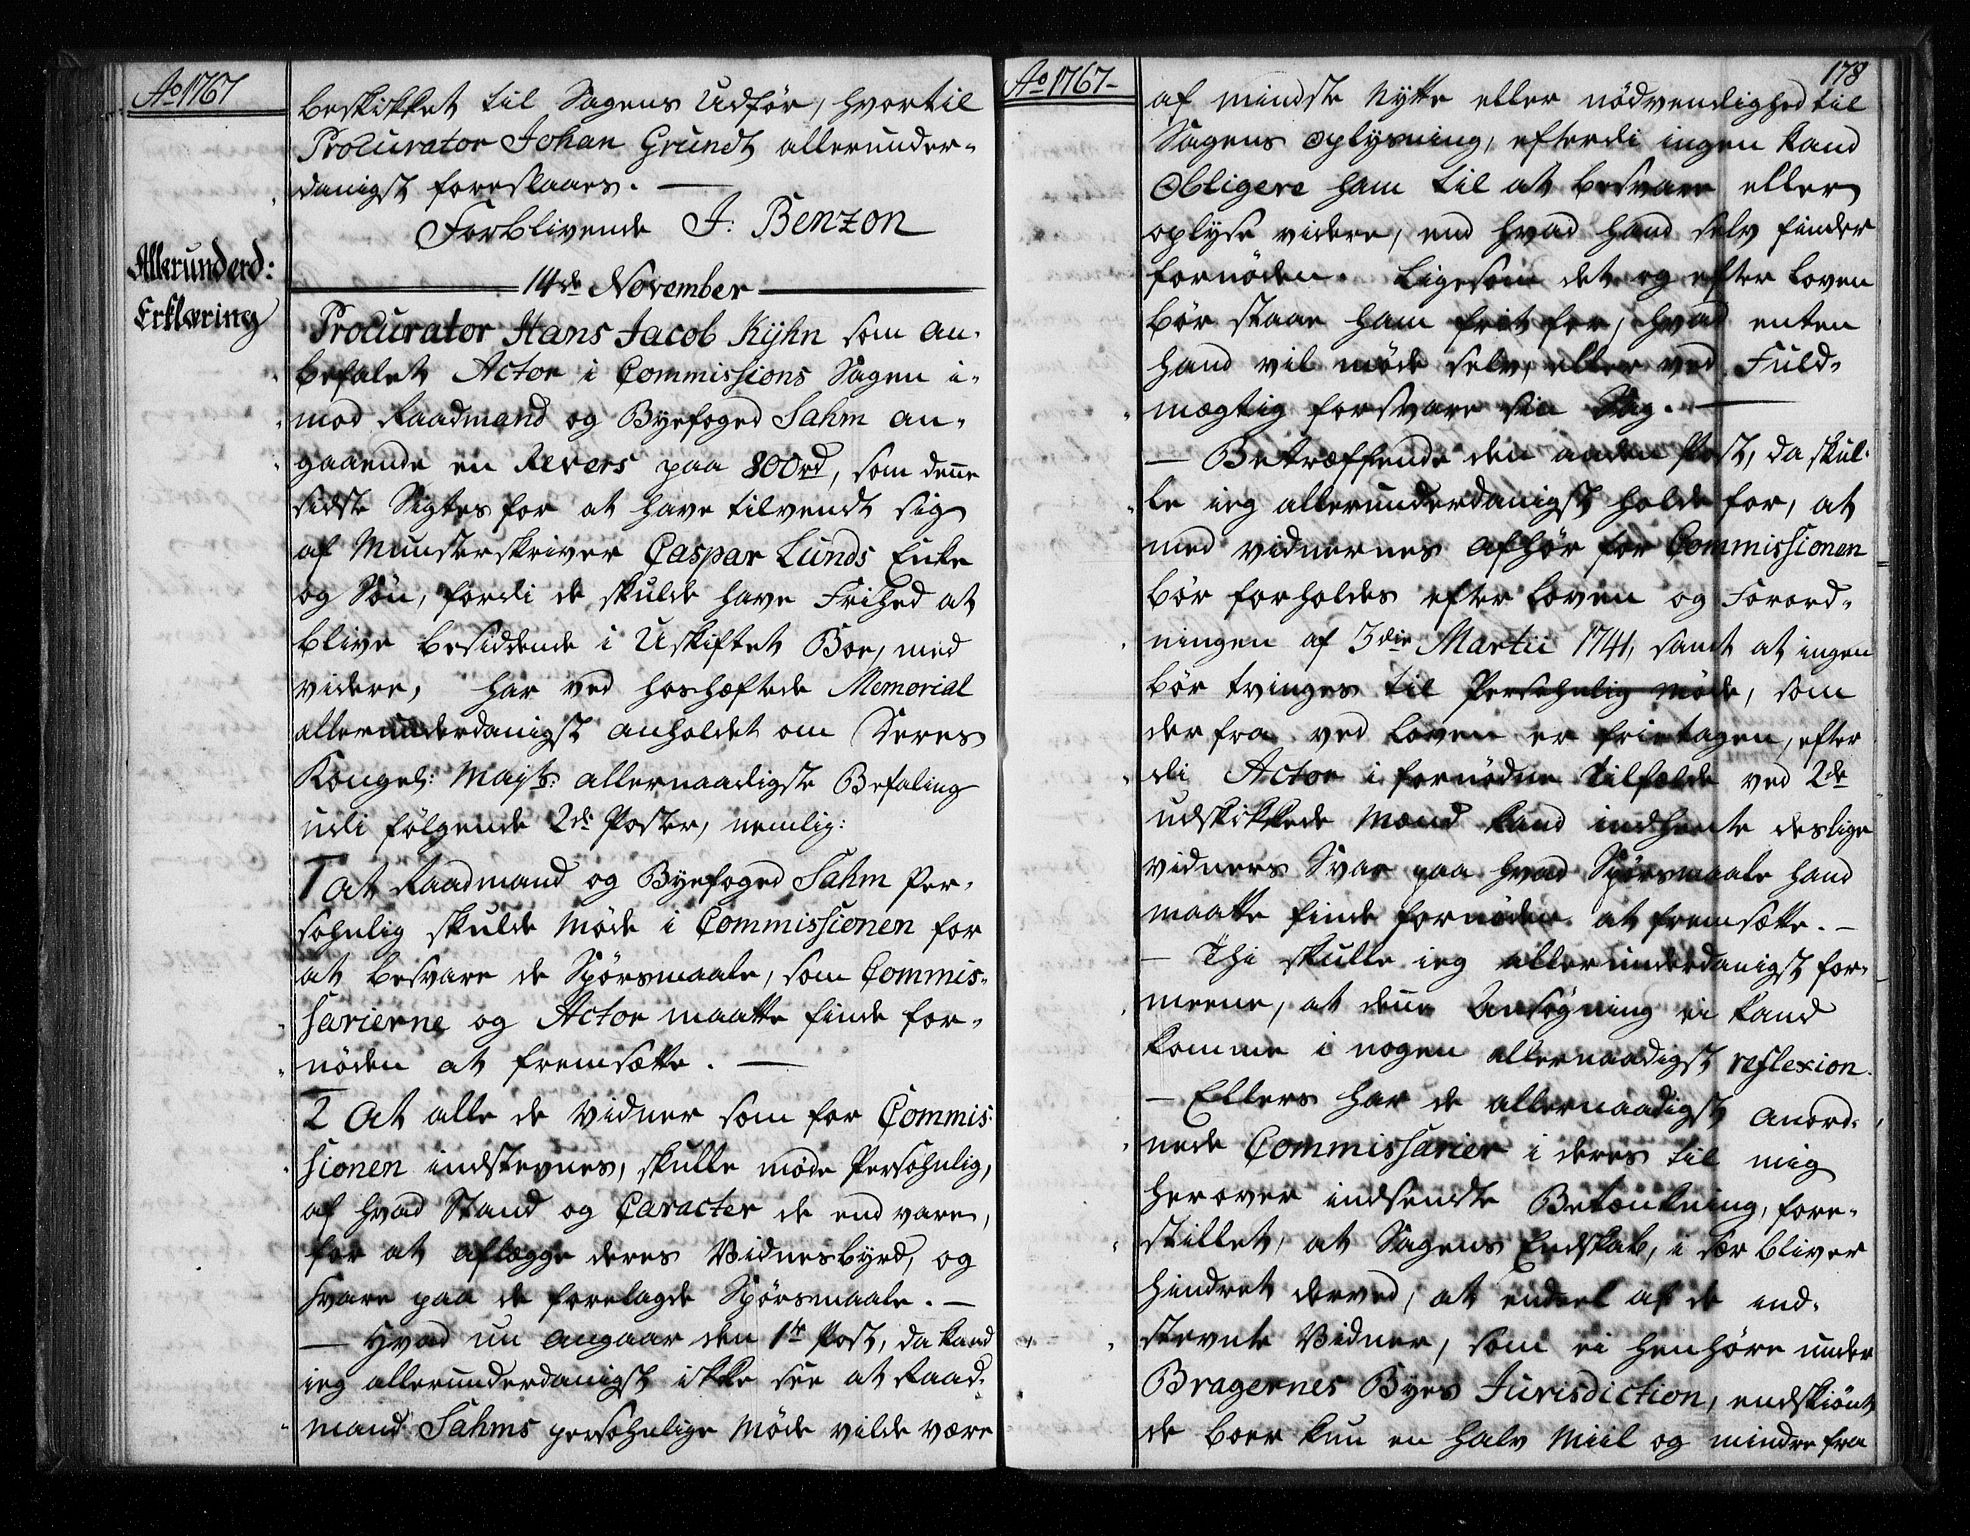 Ao 1767
beskikket til Sagens Udför, hvortil
Procurator Johan Grundt allerunder-
danigst foreslaaes. —
Forblivende J: Benzon
14de November
Allerunderd:
Erklæring
Procurator Hans Jacob Kyhn som an-
befalet Actor i Commissions Sagen i-
mod Raadmand og Byefoged Sahm an-
gaaende en Revers paa 800rd, som denne
sidste Sigtes for at have tilvendt sig
af Munsterskriver Caspar Lunds Enke
og Sön, fordi de skulde have Frihed at
blive besiddende i Uskiftet Boe, med
videre, har ved hoshæftede Memorial
allerunderdanigst anholdet om Deres
Kongel: Mayts: allernaadigste Befaling
udi fölgende 2de Poster, nemlig:
1 At Raadmand og Byefoged Sahm Per-
sohnlig skulde Möde i Commissionen for
at besvare de Spörsmaale, som Commis-
sarierne og Actor maatte finde for-
nöden at fremsætte. —
2 At alle de Vidner som for Commis-
sionen indstevnes, skulle möde Persohnlig,
af hvad Stand og Caracter de end vare,
for at aflægge deres Vidnesbyrd, og
svare paa de forelagde Spörsmaale. —
— Hvad nu angaar den 1te Post, da kand
ieg allerunderdanigst ikke see at Raad-
mand Sahms persohnlige Möde vilde være
Ao 1767-
178
af mindste Nytte eller nödvendighed til
Sagens Oplysning, efterdi ingen kand
Obligere ham til at besvare eller
oplyse videre, end hvad hand selv finder
fornöden. Ligesom det og efter Loven
bör staae ham frit for, hvad enten
hand vil möde selv, eller ved Fuld-
mægtig forsvare sin Sag. —
— Betræffende den anden Post, da skul-
le ieg allerunderdanigst holde for, at
med vidnernes afhör for Commissionen
bör forholdes efter Loven og Forord-
ningen af 3die Martii 1741, samt at ingen
bör tvinges til Persohnlig möde, som
derfra ved Loven er frietagen, efter
di Actor i fornödne tilfælde ved 2de
udskikkede Mænd kand indhente deslige
vidners Svar paa hvad Spörsmaale hand
maatte finde fornöden at fremsætte. —
— Thi skulle ieg allerunderdanigst for-
meene, at denne Ansögning ei kand
komme i nogen allernaadigst reflexion.
— Ellers har de allernaadigst anord-
nede Commissarier i deres til mig
herover indsendte Betænkning, fore-
stillet, at Sagens Endskab, i sær bliver
hindret derved, at endeel af de ind-
stevnte Vidner, som ei henhöre under
Bragernes Byes Jurisdiction, endskiönt
de boer kun en halv Miil og mindre fra